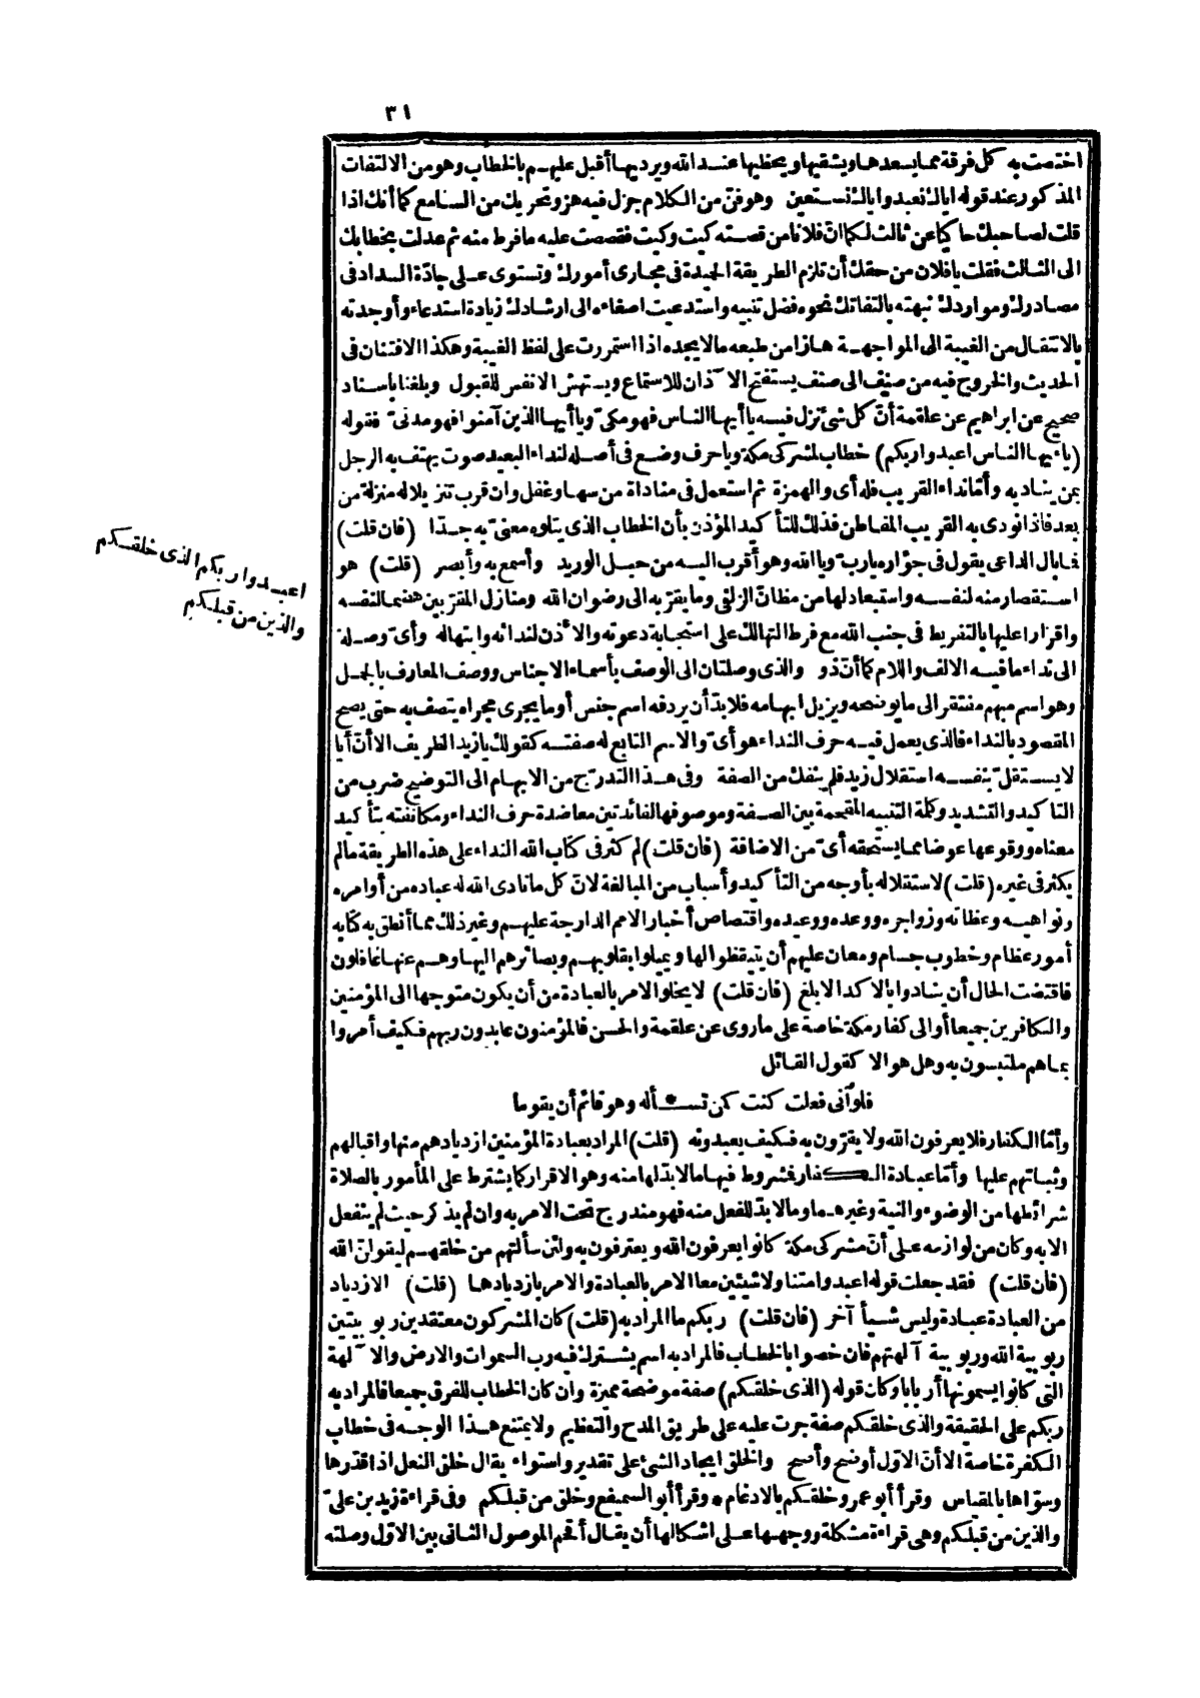 ٣١
اختصت به كل فرقة مما يسعدها ويشقيها ويحظيها عند الله ويرديها أقبل عليهم بالخطاب وهو من الالتفات
المذكور عند قوله اياك نعبد واياك نستعين وهو فن من الكلام جزل فيه هز وتحريك من السامع كما أنك اذا
قلت لصاحبك حاكيا عن ثالث لكما ان فلانا من قصته كيت وكيت فقصصت عليه ما فرط منه ثم عدلت بخطابك
الى الثالث فقلت يا فلان من حقك أن تلزم الطريقة الحميدة فى مجارى أمورك وتستوى على جادّة السداد فى
مصادرك ومواردك نبهته بالتفاتك نحوه فضل تنبيه واستدعيت اصغاءه الى ارشادك زيادة استدعاء وأوجدته
بالانتقال من الغيبة الى المواجهة هازا من طبعه مالا يجده اذا استمررت على لفظ الغيبة وهكذا الافتنان فى
الحديث والخروج فيه من صنف الى صنف يستفتح الآذان للاستماع ويستهش الانفس للقبول وبلغنا باسناد
صحيح عن ابراهيم عن علقمة أنّ كل شئ نزل فيه يا أيها الناس فهو مكىّ ويا أيها الذين آمنوا فهو مدنىّ فقوله
(يا أيها الناس اعبدوا ربكم) خطاب لمشركى مكة ويا حرف وضع فى أصله لنداء البعيد صوت يهتف به الرجل
بمن يناديه وأمّا نداء القريب فله أى والهمزة ثم استعمل فى مناداة من سها وغفل وان قرب تنزيلا له منزلة من
بعد فاذا نودى به القريب المفاطن فذلك للتأكيد المؤذن بأن الخطاب الذى يتلوه معنىّ به جدّا (فان قلت)
فما بال الداعى يقول فى جؤاره يا ربّ ويا الله وهو أقرب اليه من حبل الوريد وأسمع به وأبصر (قلت) هو
استقصار منه لنفسه واستبعاد لها من مظانّ الزلفى وما يقرّبه الى رضوان الله ومنازل المقرّبين هضما لنفسه
واقرارا عليها بالتفريط فى جنب الله مع فرط التهالك على استجابة دعوته والاذن لندائه وابتهاله وأىّ وصلة
الى نداء ما فيه الالف واللام كما أنّ ذو والذى وصلتان الى الوصف بأسماء الاجناس ووصف المعارف بالجمل
وهو اسم مبهم مفتقر الى ما يوضحه ويزيل ابهامه فلا بدّ أن يردفه اسم جنس أو ما يجرى مجراه يتصف به حتى يصح
المقصود بالنداء فالذى يعمل فيه حرف النداء هو أىّ والاسم التابع له صفته كقولك يا زيد الظريف الا أنّ أيا
لا يستقلّ بنفسه استقلال زيد فلم ينفك من الصفة وفى هذا التدرّج من الابهام الى التوضيح ضرب من
التأكيد والتشديد وكلمة التنبيه المقحمة بين الصفة وموصوفها لفائدتين معاضدة حرف النداء ومكانفته بتأكيد
معناه ووقوعها عوضا مما يستحقه أىّ من الاضافة (فان قلت) لم كثر فى كتاب الله النداء على هذه الطريقة ما لم
يكثر فى غيره (قلت) لاستقلاله بأوجه من التأكيد وأسباب من المبالغة لانّ كل ما نادى الله له عباده من أوامره
ونواهيه وعظاته وزواجره ووعده ووعيده واقتصاص أخبار الامم الدارجة عليهم وغير ذلك مما أنطق به كتابه
أمور عظام وخطوب جسام ومعان عليهم أن يتيقظوا لها ويميلوا بقلوبهم وبصائرهم اليها وهم عنها غافلون
فاقتضت الحال أن ينادوا بالاكد الابلغ (فان قلت) لا يخلو الامر بالعبادة من أن يكون متوجها الى المؤمنين
والكافرين جميعا أو الى كفار مكة خاصة على ما روى عن علقمة والحسن فالمؤمنون عابدون ربهم فكيف أمروا
بما هم ملتبسون به وهل هو الا كقول القائل
فلو أنى فعلت كنت كمن تس * أله وهو قائم أن يقوما
وأمّا الكفار فلا يعرفون الله ولا يقرّون به فكيف يعبدونه (قلت) المراد بعبادة المؤمنين ازديادهم منها واقبالهم
وثباتهم عليها وأمّا عبادة الكفار فمشروط فيها ما لا بدّ لها منه وهو الاقرار كما يشترط على المأمور بالصلاة
شرائطها من الوضوء والنية وغيرهما وما لا بدّ للفعل منه فهو مندرج تحت الامر به وان لم يذكر حيث لم ينفعل
الا به وكان من لوازمه على أنّ مشركى مكة كانوا يعرفون الله ويعترفون به ولئن سألتهم من خلقهم ليقولنّ الله
(فان قلت) فقد جعلت قوله اعبدوا متناولا شيئين معا الامر بالعبادة والامر بازديادها (قلت) الازدياد
من العبادة عبادة وليس شيأ آخر (فان قلت) ربكم ما المراد به (قلت) كان المشركون معتقدين ربوبيتين
ربوبية الله وربوبية آلهتهم فان خصوا بالخطاب فالمراد به اسم يشترك فيه رب السموات والارض والآلهة
التى كانوا يسمونها أربابا وكان قوله (الذى خلقكم) صفة موضحة مميزة وان كان الخطاب للفرق جميعا فالمراد به
ربكم على الحقيقة والذى خلقكم صفة جرت عليه على طريق المدح والتعظيم ولا يمتنع هذا الوجه فى خطاب
الكفرة خاصة الا أنّ الاوّل أوضح وأصح والخلق ايجاد الشئ على تقدير واستواء يقال خلق النعل اذا قدّرها
وسوّاها بالمقياس وقرأ أبو عمرو خلقكم بالادغام * وقرأ أبو السميفع وخلق من قبلكم وفى قراءة زيد بن علىّ
والذين من قبلكم وهى قراءة مشكلة ووجهها على اشكالها أن يقال أقحم الموصول الثانى بين الاوّل وصلته
اعبدوا ربكم الذى خلقكم
والذين من قبلكم